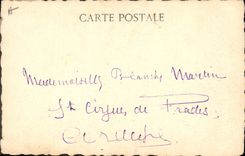 CARTE POSTALE
Mademoiselle Blanche Martin
St Cirgues de Prades
Ardèche